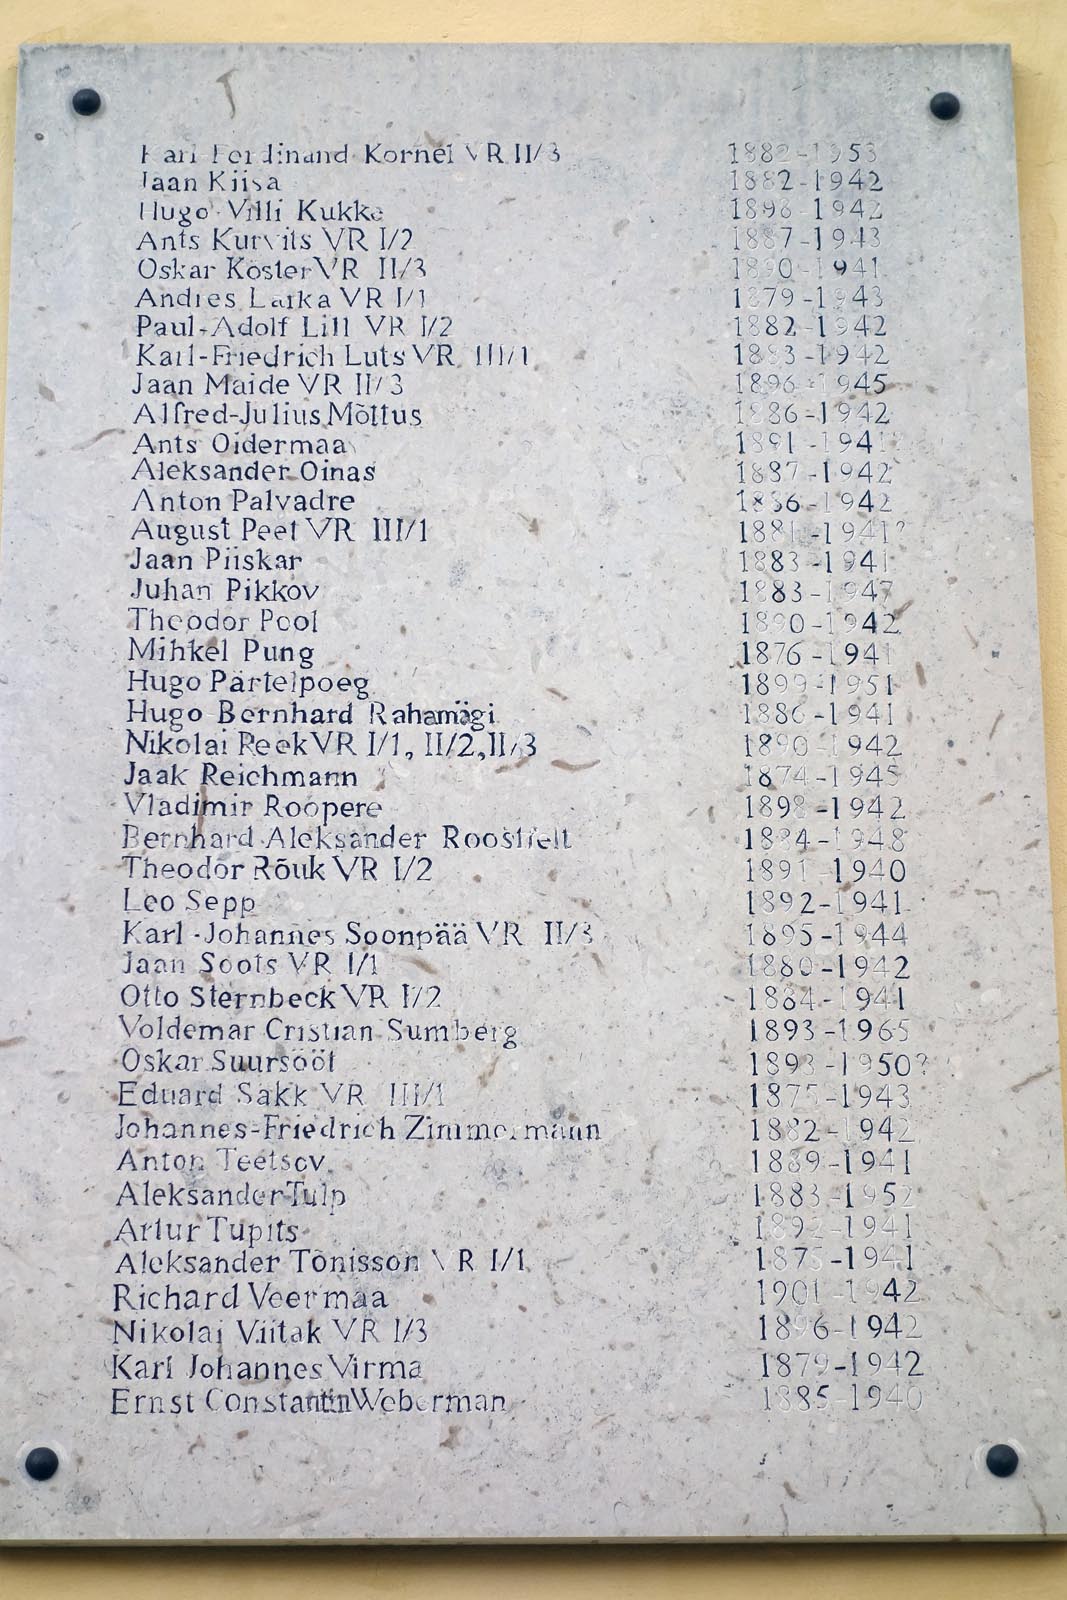 Karl Ferdinand Kornel VR II/3 1882-1953
Jaan Kiisa 1882-1942
Hugo Villi Kukke 1898-1942
Ants Kurvits VR I/2 1887-1943
Oskar Köster VR II/3 1890-1941
Andres Larka VR I/1 1879-1943
Paul-Adolf Lill VR I/2 1882-1942
Karl-Friedrich Luts VR III/1 1883-1942
Jaan Maide VR II/3 1896-1945
Alfred-Julius Mõttus 1886-1942
Ants Oidermaa 1891-1941?
Aleksander Oinas 1887-1942
Anton Palvadre 1886-1942
August Peet VR III/1 1881-1941?
Jaan Piiskar 1883-1941
Juhan Pikkov 1883-1947
Theodor Pool 1890-1942
Mihkel Pung 1876-1941
Hugo Pärtelpoeg 1899-1951
Hugo Bernhard Rahamägi 1886-1941
Nikolai Reek VR I/1, II/2, II/3 1890-1942
Jaak Reichmann 1874-1945
Vladimir Roopere 1898-1942
Bernhard Aleksander Roostfelt 1884-1948
Theodor Rõuk VR I/2 1891-1940
Leo Sepp 1892-1941
Karl-Johannes Soonpää VR II/3 1895-1944
Jaan Soots VR I/1 1880-1942
Otto Sternbeck VR I/2 1884-1941
Voldemar Cristian Sumberg 1893-1965
Oskar Suursööt 1893-1950?
Eduard Sakk VR III/1 1875-1943
Johannes-Friedrich Zimmermann 1882-1942
Anton Teetsov 1889-1941
Aleksander Tulp 1883-1952
Artur Tupits 1892-1941
Aleksander Tõnisson VR I/1 1875-1941
Richard Veermaa 1901-1942
Nikolai Viitak VR I/3 1896-1942
Karl Johannes Virma 1879-1942
Ernst Constantin Weberman 1885-1940